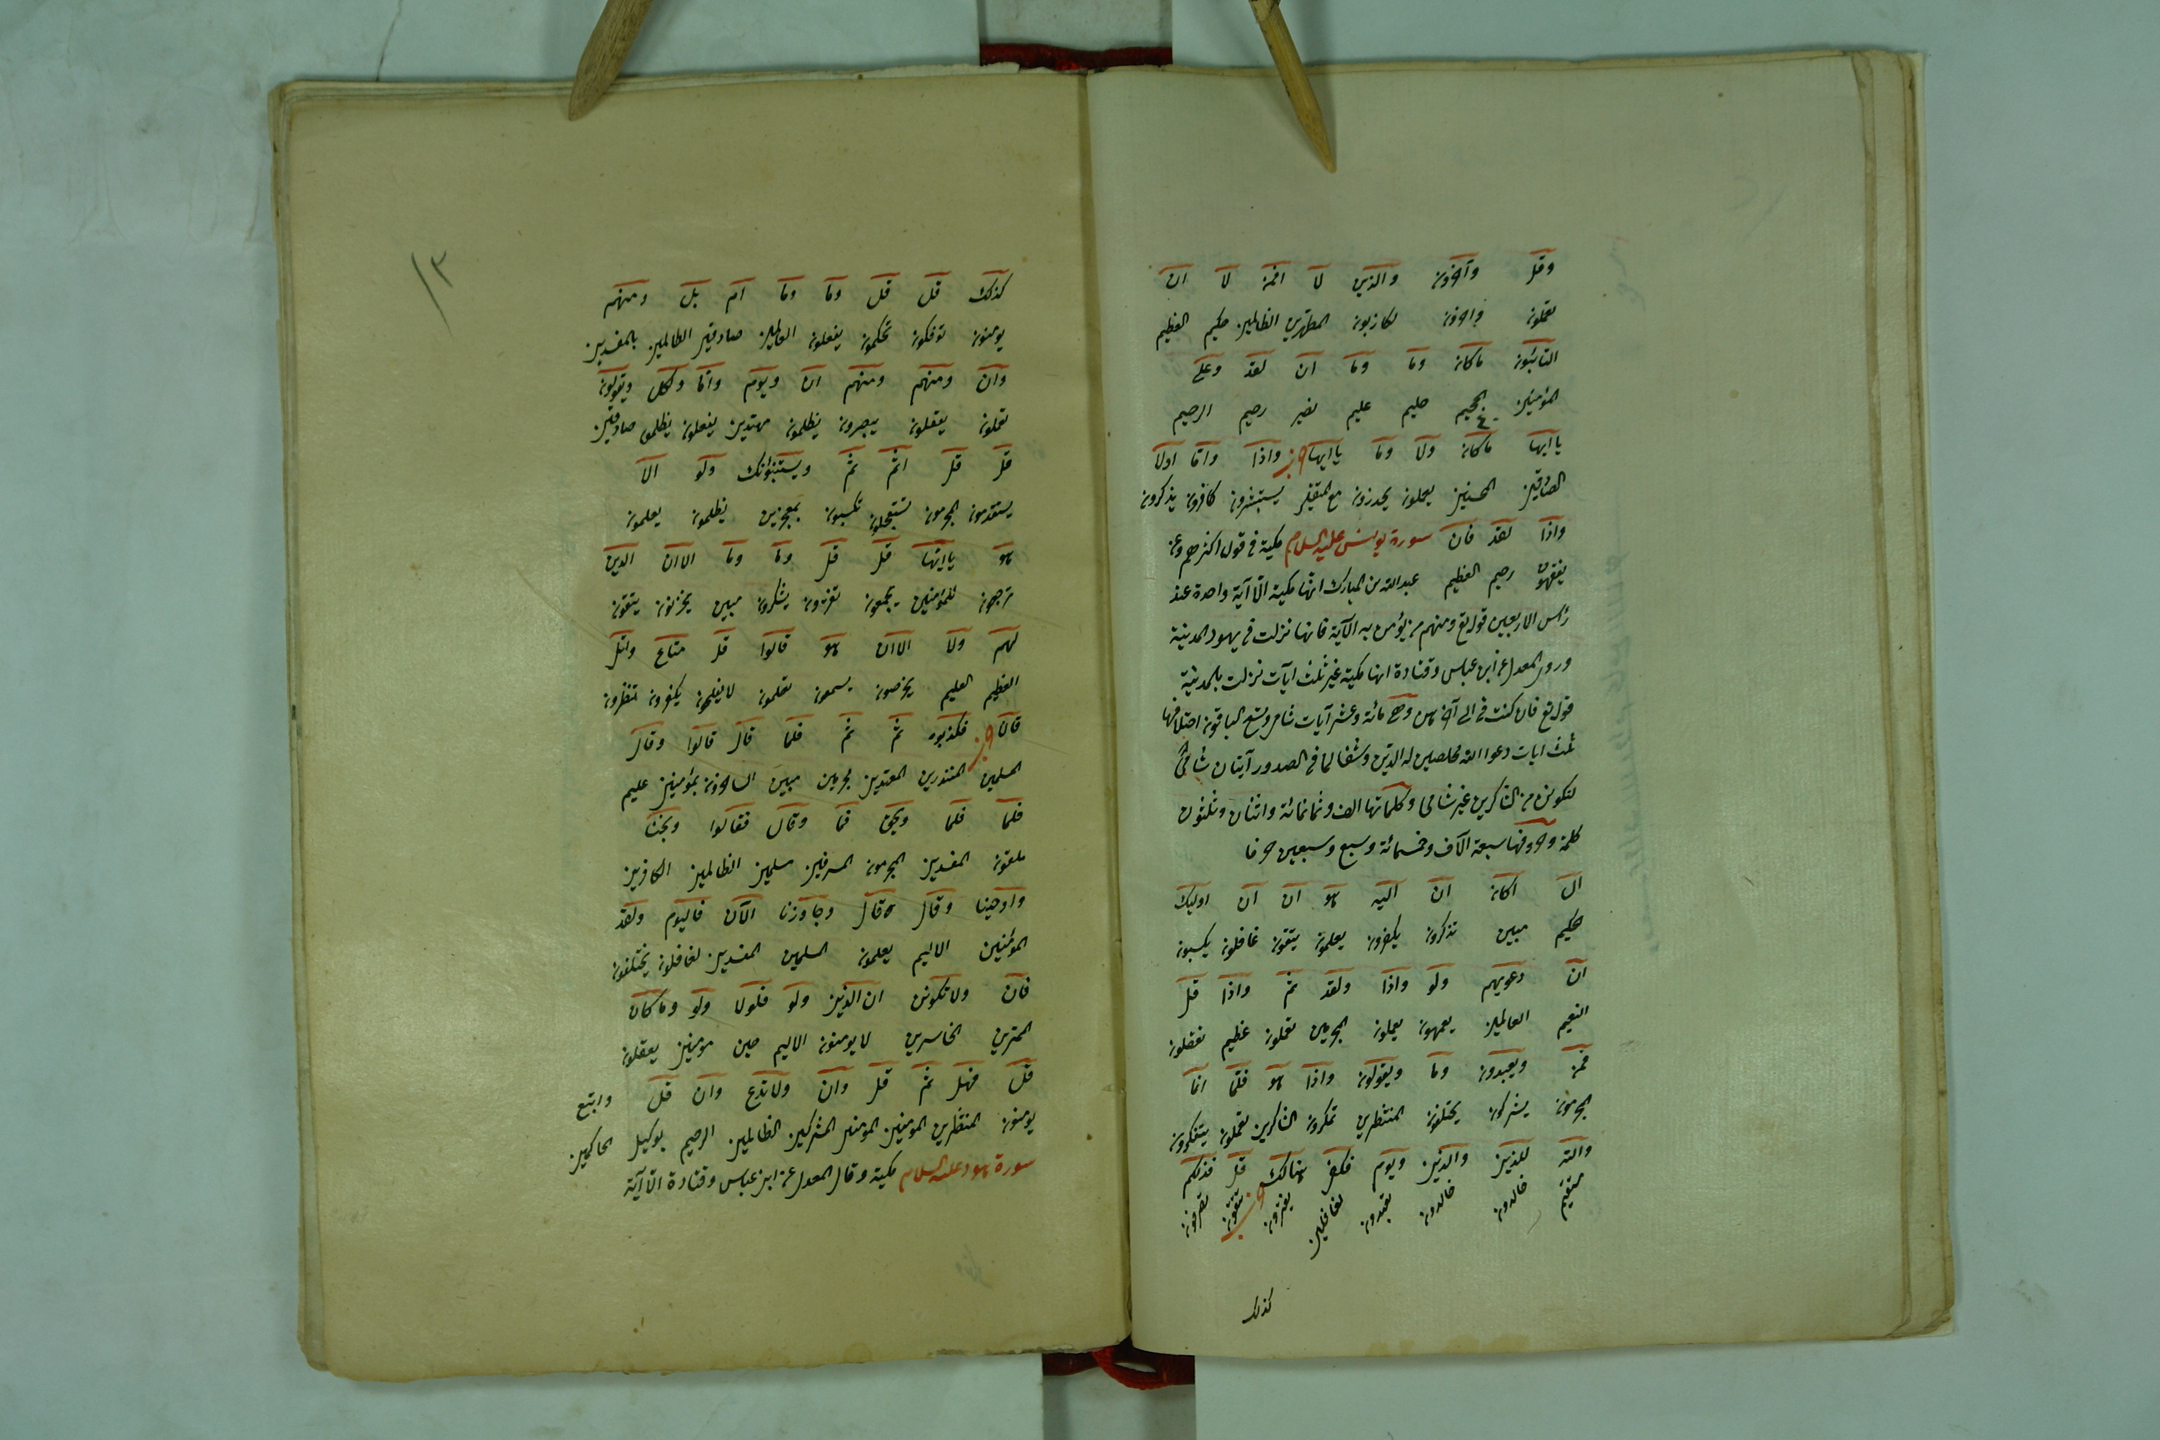 وقل وآخرون والذين لا افمن لا ان
تعملون وآخرون لكاذبون المطهرين الظالمين حكيم العظيم
التائبون ماكان وما وما ان لقد وعلى
المؤمنين الجحيم حليم عليم نصير رحيم الرحيم
ياايها ماكان ولا وما ياايها واذا واما اولا
الصادقين المحسنين يعملون يحذرون مع المتقين يستبشرون كافرون يذكرون
واذا لقد فان سورة يونس عليه السلام مكية فى قول اكثرهم وعن
يفقهون رحيم العظيم عبدالله بن المبارك انها مكية الا آية واحدة عند
رأس الاربعين قوله تع ومنهم من يؤمن به الآية فانها نزلت فى يهود المدينة
وروى المعدل عن ابن عباس وقتادة انها مكية غير ثلث ايات نزلت بالمدينة
قوله تع فان كنت فى الى آخرهن وهى مائة وعشر آيات شامى وتسع الباقون اختلافها
ثلث ايات دعوا الله مخلصين له الدين وشفا لما فى الصدور آيتان شامى
لنكونن من الشاكرين غير شامى وكلماتها الف وثمانمائة واثنان وثلثون
كلمة وحروفها سبعة الآف وخمسمائة وسبع وسبعين حرفا
الر اكان ان اليه هو ان ان اوليك
حكيم مبين تذكرون يكفرون يعلمون يتقون غافلون يكسبون
ان دعويهم ولو واذا ولقد ثم واذا قل
النعيم العالمين يعمهون يعملون المجرمين تعملون عظيم تعقلون
فمن ويعبدون وما ويقولون واذا هو فلما انما
المجرمون يشركون يختلفون المنتظرين تمكرون الشاكرين تعملون يتفكرون
والله للذين والذين ويوم فكفى هنالك قل فذلكم
مستقيم خالدون خالدون تعبدون لغافلين يفترون تتقون تصرفون
كذلك
١٣
كذلك قل قل وما وما ام بل ومنهم
يومنون توفكون تحكمون يفعلون العالمين صادقين الظالمين بالمفسدين
وان ومنهم ومنهم ان ويوم واما ولكل ويقولون
تعملون يعقلون يبصرون يظلمون مهتدين يفعلون يظلمون صادقين
قل قل اثم ثم ويستنبؤنك ولو الا
يستقدمون المجرمون تستعجلون تكسبون بمعجزين يظلمون يعلمون
هو ياايها قل قل وما وما الا ان الذين
ترجعون للمؤمنين يجمعون تفترون يشكرون مبين يحزنون يتقون
لهم ولا الا ان هو قالوا قل متاع واتل
العظيم العليم يخرصون يسمعون تعلمون لا يفلحون يكفرون تنظرون
فان فكذبوه ثم ثم فلما قال قالوا وقال
المسلمين المنذرين المعتدين مجرمين مبين الساحرون بمؤمنين عليم
فلما فلما ويحق فما وقال فقالوا ونجنا
ملقون المفسدين المجرمون المسرفين مسلمين الظالمين الكافرين
واوحينا وقال قال وجاوزنا الآن فاليوم ولقد
المؤمنين الاليم يعلمون المسلمين المفسدين لغافلون يختلفون
فان ولا تكونن ان الذين ولو فلولا ولو وما كان
الممترين الخاسرين لا يومنون الاليم حين مومنين يعقلون
قل فهل ثم قل وان ولا تدع وان قل واتبع
يومنون المنتظرين المومنين المومنين المشركين الظالمين الرحيم بوكيل الحاكمين
سورة هود عليه السلام مكية وقال المعدل عن ابن عباس وقتادة الا آية